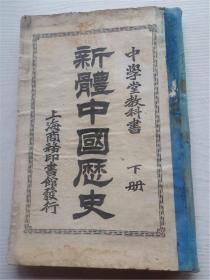 中學堂教科書
下册
新體中國歷史
上海商務印書館發行